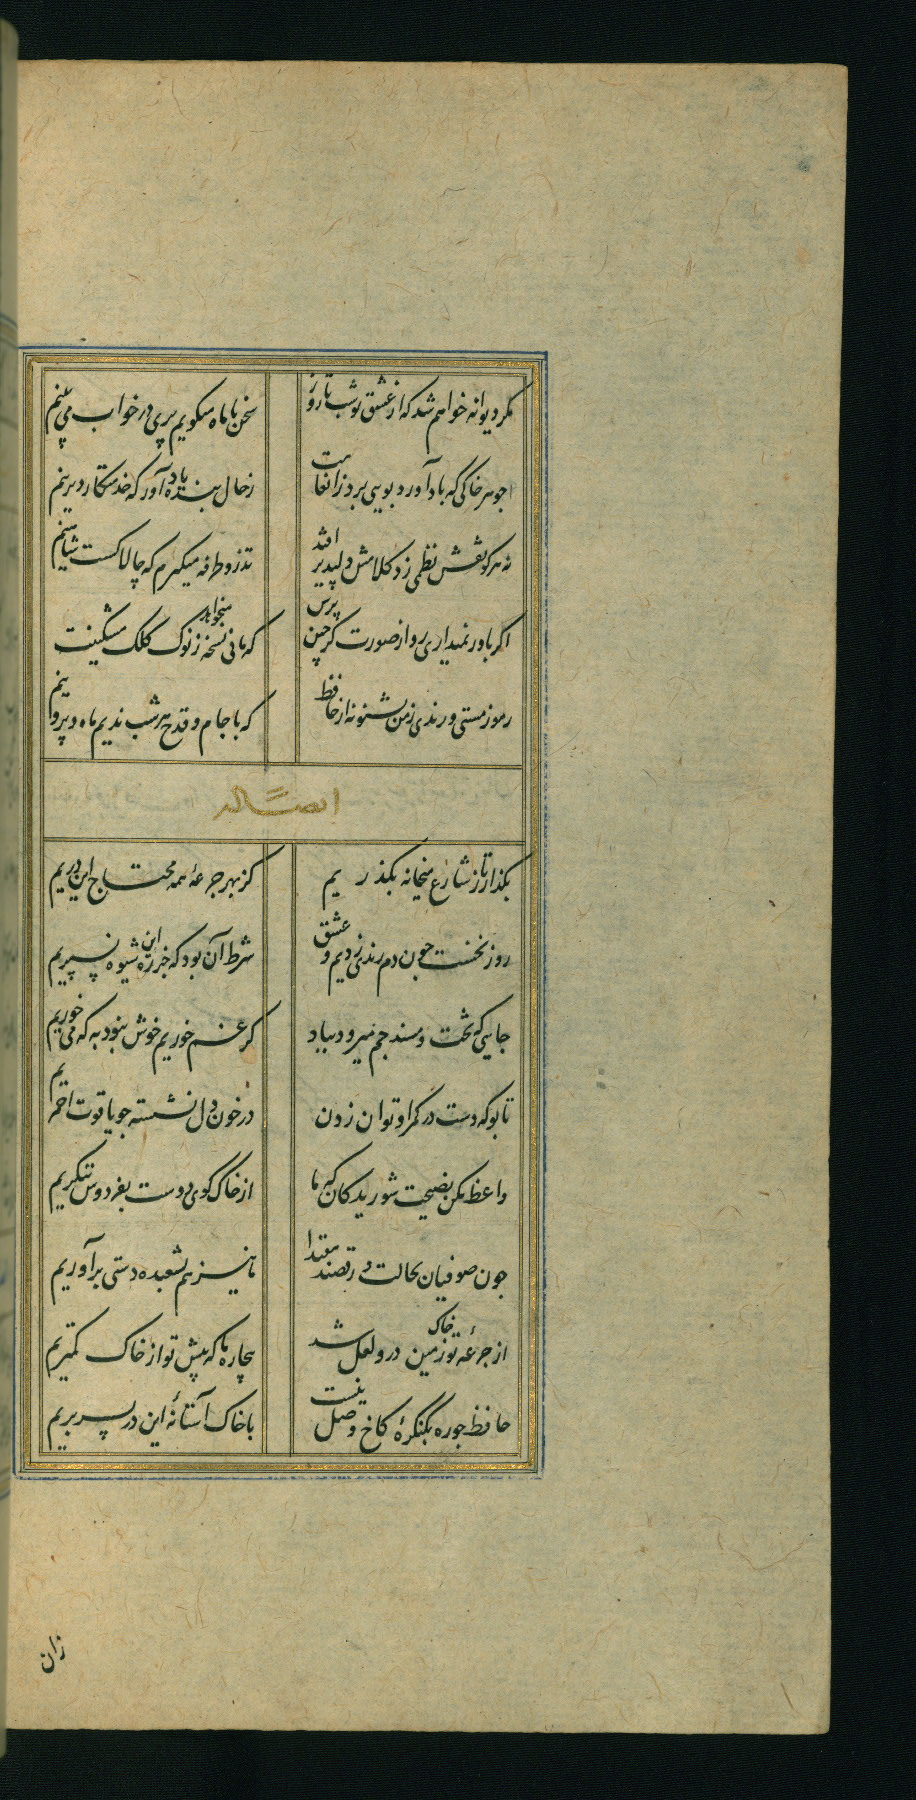 مکر دیوانه خواهم شد که از عشق تو شب تا روز
سخن با ماه میکویم پری در خواب می بینم
جو هر خاکی که باد آورد بویی برد ز انعامت
ز حال بنده یاد آور که خدمتکار دیرینم
نه هر کو نقش نظمی زد کلامش دلپذیر افتد
تذرو طرفه میکیرم که چالاکست شاهینم
اکر باور نمیداری رو از صورت کر چین پرس
که مانی نسخه میخواهد ز نوک کلک مشکینت
رموز مستی و رندی ز من بشنو نه از حافظ
که با جام و قدح هر شب ندیم ماه و پروینم
ایضا له
بکذار تا ز شارع میخانه بکذریم
کز بهر جرعۀ همه محتاج این دریم
روز نخست جون دم رندی زدیم و عشق
شرط آن بود که جز ره این شیوه نسپریم
جایی که تخت و مسند جم میرود بباد
کر غم خوریم خوش نبود به که می خوریم
تا بو که دست در کمر او توان زدن
در خون دل نشسته جو یاقوت احمریم
واعظ مکن نصیحت شوریدکان که ما
از خاک کوی دوست بفردوس ننکریم
جون صوفیان بحالت و رقصند مقتدا
ما نیز هم بشعبده دستی برآوریم
از جرعۀ تو خاک زمین در و لعل شد
بیچاره ما که پیش تو از خاک کمتریم
حافظ جو ره بکنکرۀ کاخ وصل نیست
با خاک آستانۀ این در بسر بریم
زان